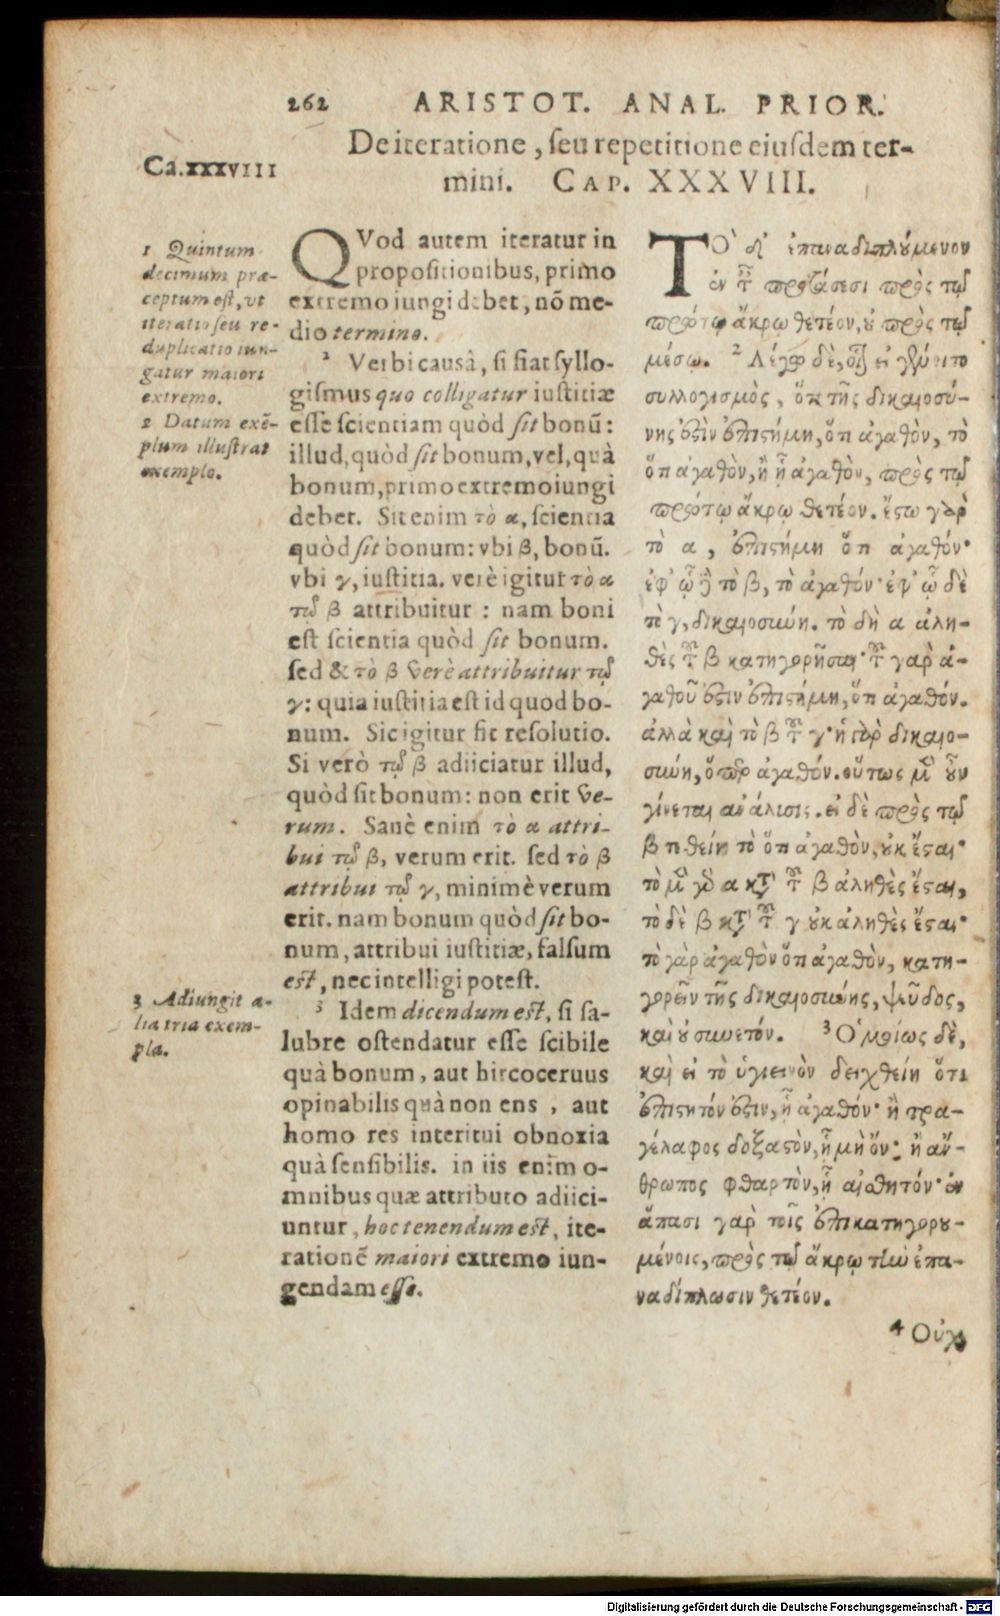 262 ARISTOT. ANAL. PRIOR.
De iteratione, seu repetitione eiusdem ter-
mini. CAP. XXXVIII.
Ca. xxxvIII
1 Quintum
decimum præ-
ceptum est, vt
iteratio seu re-
duplicatio iun-
gatur maiori
extremo.
2 Datum exē-
plum illustrat
exemplo.
3 Adiungit a-
lia tria exem-
pla.
QVod autem iteratur in
propositionibus, primo
extremo iungi debet, nō me-
dio termino.
2 Verbi causâ, si fiat syllo-
gismus quo colligatur iustitiæ
esse scientiam quòd sit bonū:
illud, quòd sit bonum, vel, quà
bonum, primo extremo iungi
debet. Sit enim τὸ α, scientia
quòd sit bonum: vbi β, bonū.
vbi γ, iustitia. verè igitur τὸ α
τῷ β attribuitur : nam boni
est scientia quòd sit bonum.
sed & τὸ β verè attribuitur τῷ
γ: quia iustitia est id quod bo-
num. Sic igitur fit resolutio.
Si verò τῷ β adiiciatur illud,
quòd sit bonum: non erit ve-
rum. Sanè enim τὸ α attri-
bui τῷ β, verum erit. sed τὸ β
attribui τῷ γ, minimè verum
erit. nam bonum quòd sit bo-
num, attribui iustitiæ, falsum
est, nec intelligi potest.
3 Idem dicendum est, si sa-
lubre ostendatur esse scibile
quà bonum, aut hircoceruus
opinabilis quà non ens , aut
homo res interitui obnoxia
quà sensibilis. in iis enim o-
mnibus quæ attributo adiici-
untur, hoc tenendum est, ite-
rationē maiori extremo iun-
gendam esse.
ΤὸΔ' ἐπαναδιπλούμενον
ἐν τ προτάσεσι πρὸς τῷ
πρώτῳ ἄκρῳ θετέον, οὐ πρὸς τῷ
μέσῳ. 2 Λέγω δὲ, οἷον εἰ γένοιτο
συλλογισμὸς, ὅτι τῆς δικαιοσύ-
νης ἐστὶν ἐπιστήμη, ὅτι ἀγαθὸν, τὸ
ὅτι ἀγαθὸν, ἢ ᾗ ἀγαθὸν, πρὸς τῷ
πρώτῳ ἄκρῳ θετέον. ἔστω γὰρ
τὸ α, ἐπιστήμη ὅτι ἀγαθόν·
ἐφ' ᾧ ἢ τὸ β, τὸ ἀγαθόν· ἐφ' ᾧ δὲ
τὸ γ, δικαιοσύνη. τὸ δὴ α ἀλη-
θὲς τοῦ β κατηγορῆσαι· τοῦ γὰρ ἀ-
γαθοῦ ἐστὶν ἐπιστήμη, ὅτι ἀγαθόν.
ἀλλὰ καὶ τὸ β τοῦ γ· ἡ γὰρ δικαιο-
σύνη, ὅπερ ἀγαθόν. οὕτως μὲν οὖν
γίνεται ἀνάλυσις. εἰ δὲ πρὸς τῷ
β τεθείη τὸ ὅτι ἀγαθὸν, οὐκ ἔσται·
τὸ μὲν γὰρ α κατὰ τοῦ β ἀληθὲς ἔσται,
τὸ δὲ β κατὰ τοῦ γ οὐκ ἀληθὲς ἔσται·
τὸ γὰρ ἀγαθὸν ὅτι ἀγαθὸν, κατη-
γορεῖν τῆς δικαιοσύνης, ψεῦδος,
καὶ οὐ συνετόν. 3 Ὁμοίως δὲ,
καὶ εἰ τὸ ὑγιεινὸν δειχθείη ὅτι
ἐπιστητόν ἐστιν, ᾗ ἀγαθόν· ἢ τρα-
γέλαφος δοξαστὸν, ᾗ μὴ ὄν· ἢ ἄν-
θρωπος φθαρτὸν, ᾗ αἰσθητόν· ἐν
ἅπασι γὰρ τοῖς ἐπικατηγορου-
μένοις, πρὸς τῷ ἄκρῳ τὴν ἐπα-
ναδίπλωσιν θετέον.
4 Οὐχ
Digitalisierung gefördert durch die Deutsche Forschungsgemeinschaft - DFG